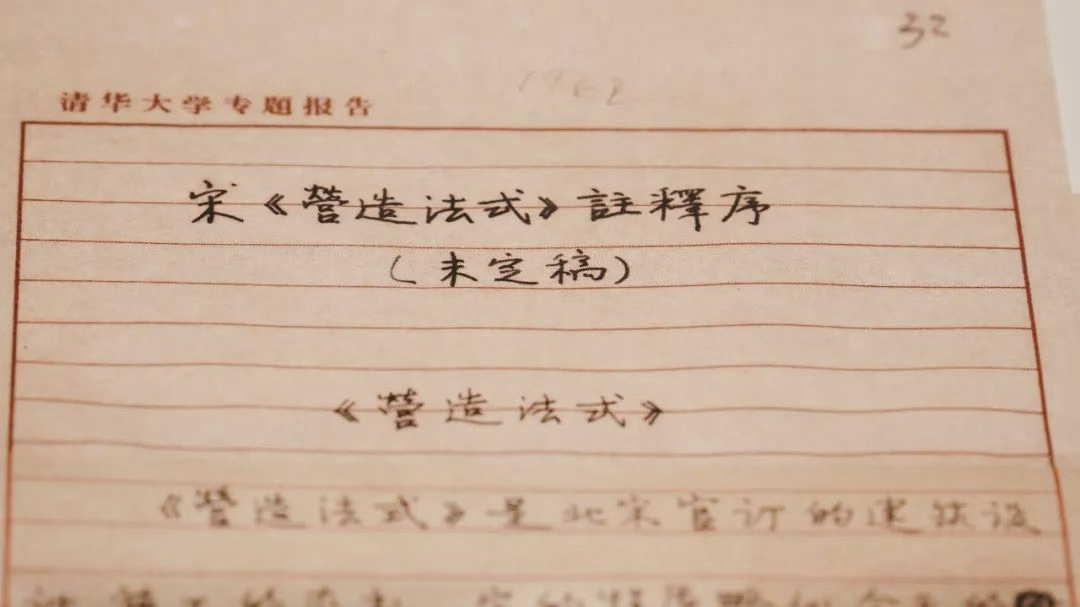 32
1962
清华大学专题报告
宋《营造法式》註釋序
(未定稿)
《营造法式》
《营造法式》是北宋官订的建筑设